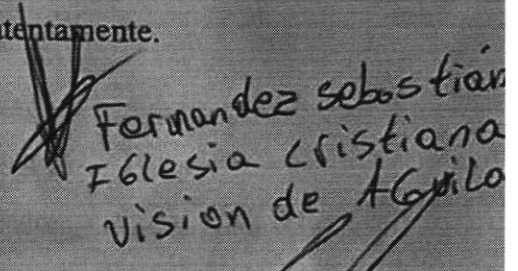 atentamente.
Fernandez sebastián
IGlesia cristiana
vision de AGuila